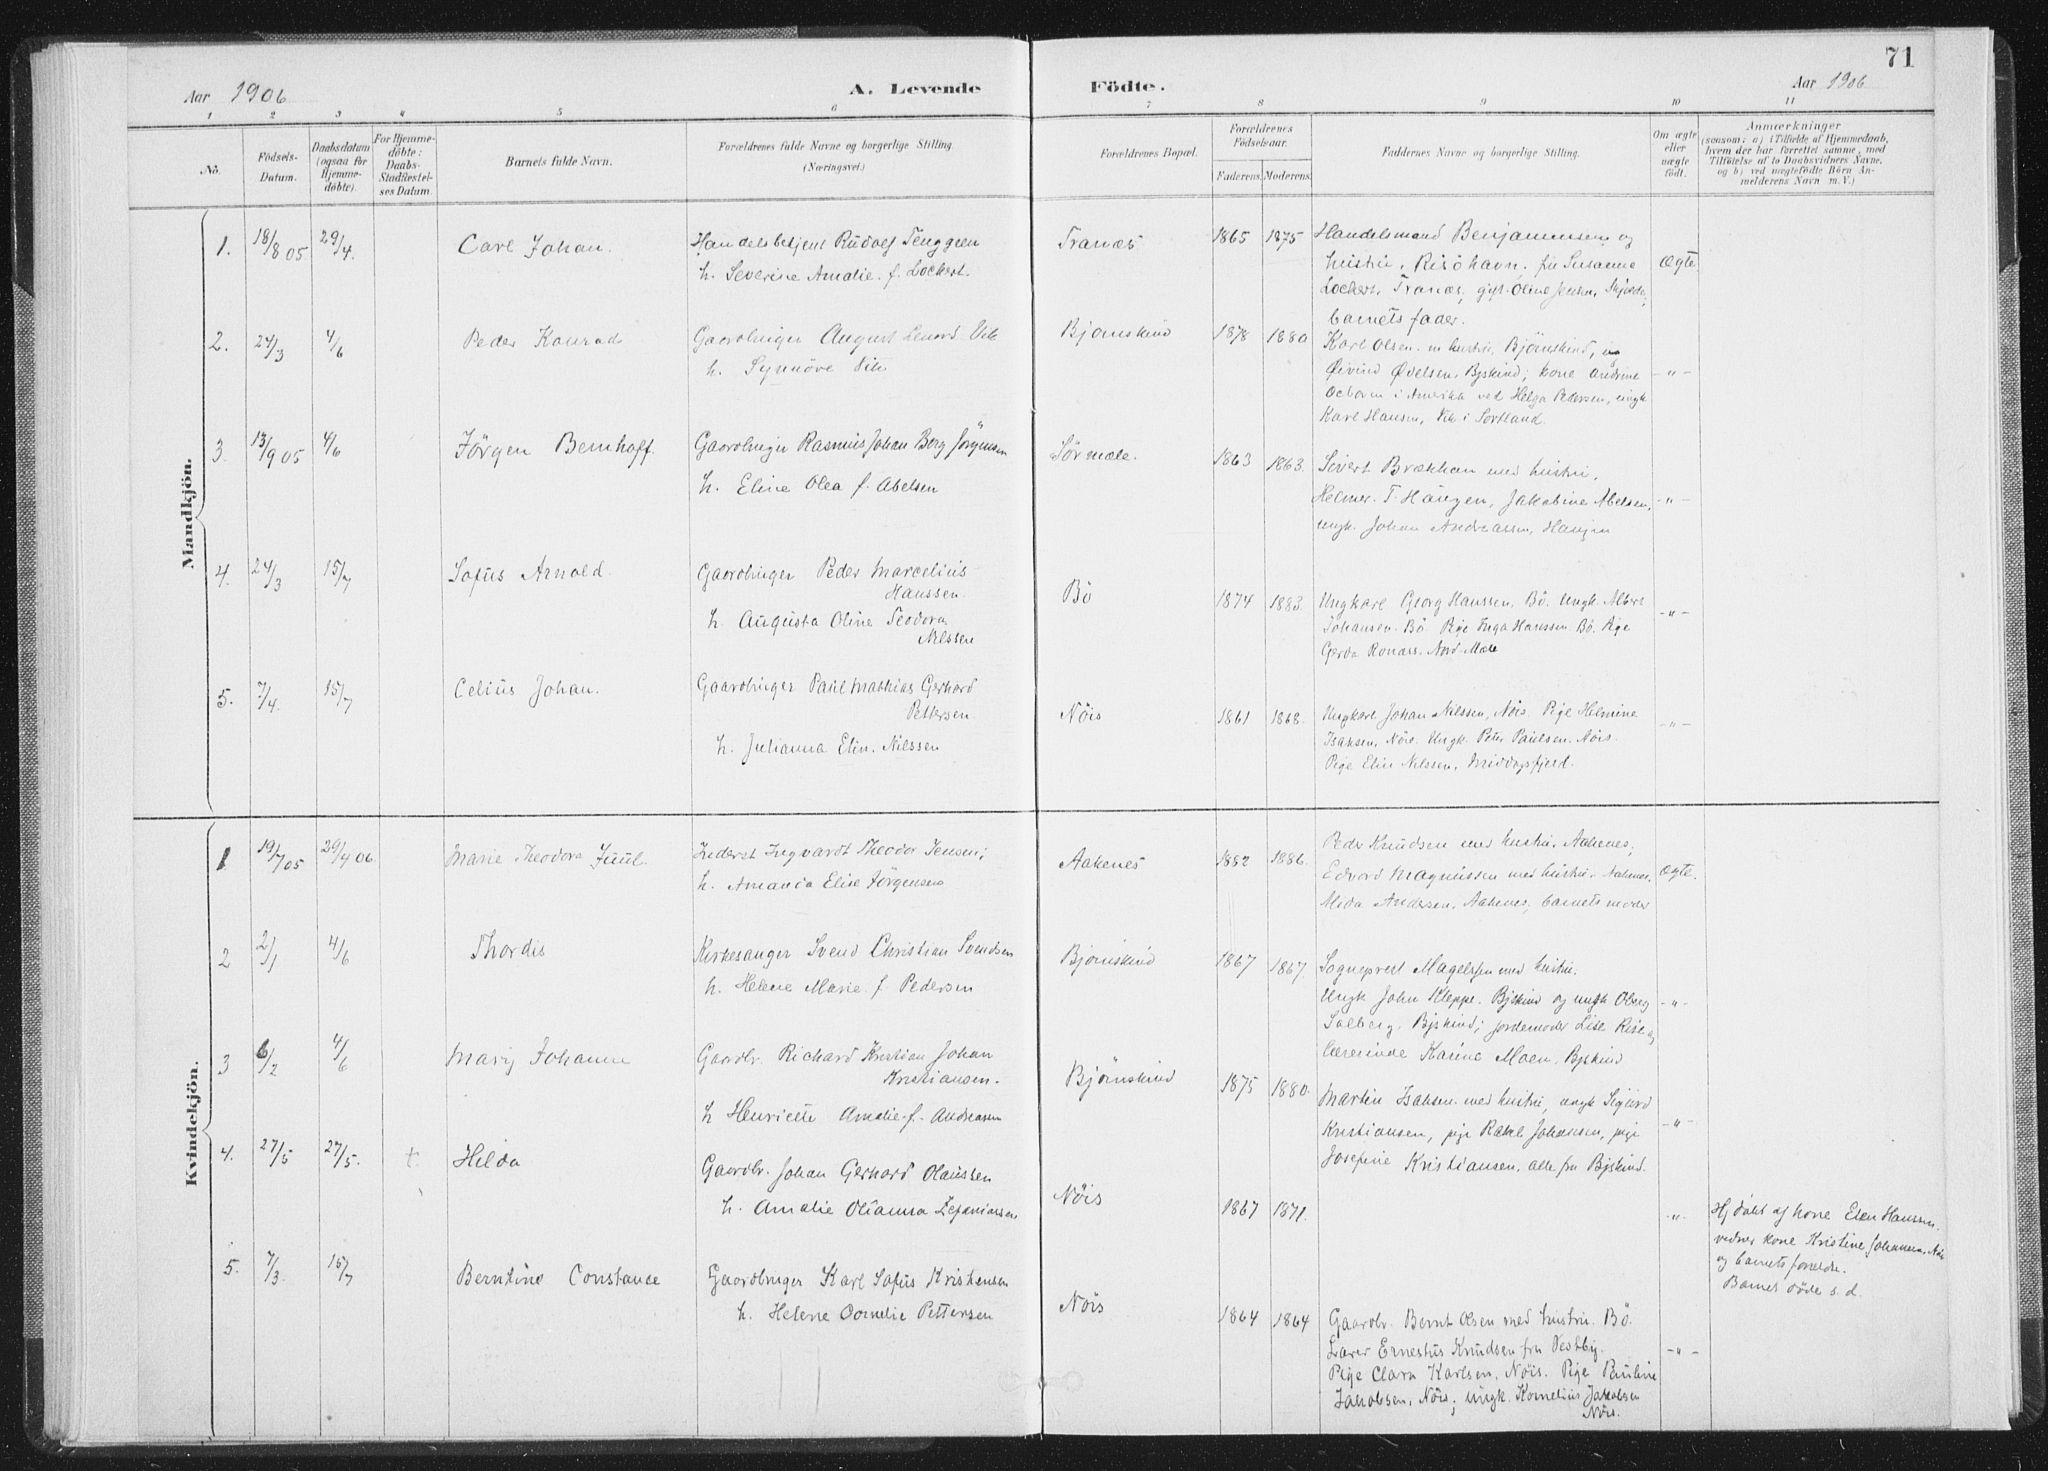 71
Aar 1906
A. Levende Födte.
Aar 1906
1 2 3 4 5 6 7 8 9 10 11
No.
Födsels-
Datum.
Daabsdatum
(ogsaa for
Hjemme-
döbte).
For Hjemme-
döbte:
Daabs-
Stadfestel-
ses Datum.
Barnets fulde Navn.
Forældrenes fulde Navne og borgerlige Stilling.
(Næringsvei.)
Forældrenes Bopæl.
Forældrenes
Födselsaar.
Faderens. Moderens.
Faddernes Navne og borgerlige Stilling.
Om ægte
eller
uægte
födt.
Anmærkninger
(saasom: a) i Tilfælde af Hjemmedaab,
hvem der har forrettet samme, med
Tilföielse af to Daabsvidners Navne,
og b) ved uægtefödte Börn An-
melderens Navn m. V.)
Mandkjön.
1. 18/8 05 29/4. Carl Johan.
Handelsbetjent Rudolf Tenggren
h. Severine Amalie f. Lockert.
Tranæs 1865 1875
Handelsmand Benjaminsen og
hustru, Risöhavn. frk Susanna
Lockert, Tranæs, gift Oline Jensen,
barnets fader.
Ægte
2. 24/3 4/6 Peder Konrad
Gaardbruger August Lenord Vik
h. Synnöve Vik
Bjørnskind 1878 1880
Karl Olsen m hustru, Bjørnskind, og
Øivind Ødelsen, Bjskind; kone Andrine
i Amerika ved Helga Pedersen, ungk
Karl Hansen, Vik i Sortland.
-"-
3. 13/9 05 4/6 Jörgen Bernhoff.
Gaardbruger Rasmus Johan Berg Jörgensen
h. Eline Olea f. Abelsen
Sör mæle. 1863 1863.
Sivert Brækkan med hustru,
Helmer T. Haugen, Jakobine Abelsen,
ungk. Johan Andreassen, Haugen
-"-
4. 24/3 15/7 Sofus Arnold.
Gaardbruger Peder Marcelius
Hanssen.
h. Augusta Oline Teodora
Nilssen
Bö 1874 1883.
Ungkarl Georg Hanssen, Bö. Ungk. Albert
Johansen. Bö. Pige Inga Hanssen Bö. Pige
Gerda Ronæss. Nord-Mæle
-"-
5. 7/4. 15/7 Celius Johan.
Gaardbruger Paul Mathias Gerhard
Pettersen
h. Julianna Elin. Nilssen
Nöis 1861 1868.
Ungkarl Johan Nilssen, Nöis. Pige Helmine
Isaksen, Nöis. Ungk. Peter Paulsen. Nöis.
Pige Elin Nilssen, Middagsfjord.
-"-
Kvindekjön.
1 19/7 05 29/4 06 Marie Theodora Juul.
Inderst Ingvardt Theodor Jensen;
h. Amanda Elise Jörgensen
Aakenes 1882 1886.
Peder Knudsen med hustru, Aakenes,
Edvard Magnussen med hustru. Aakenes.
Alida Andersen, Aakenes, barnets moder
Ægte.
2 2/1 4/6 Thordis
Kirkesanger Svend Christian Svendsen
h. Helene Marie f. Pedersen
Bjørnskind 1867 1867.
Sogneprest Magelssen med hustru.
Ungk John Kleppe. Bjskind og ungk Oberg
Solberg, Bjskind; jordemoder Lise Riise og
lærerinde Karine Moen, Bjskind
-"-
3 6/2 4/6 Mary Johanne
Gaardbr. Richard Kristian Johan
Kristiansen.
h Henriette Amalie f. Andreassen
Bjørnskind 1875 1880.
Martin Isaksen med hustru, ungk Sigurd
Kristiansen, pige Rakel Johansen, pige
Josefine Kristiansen, alle fra Bjskind.
-"-
4. 27/5 27/5. †. Hilda
Gaardbr. Johan Gerhard Olaussen
h. Amalie Olianna Zefaniassen
Nöis 1867 1871.
"
Hj. döbt af kone Elen Hanssen.
vidner kone Kristine Johansen, Nöis
og barnets forældre.
Barnet döde s. d.
5. 7/3. 15/7 Berntine Constance
Gaardbruger Karl Sofus Kristensen
h. Helene Cornelie Pettersen
Nöis 1864 1864
Gaardbr. Bernt Olsen med hustru. Bö.
Lærer Ernestus Knudsen fra Vestby.
Pige Clara Karlsen, Nöis. Pige Pauline
Jakobsen, Nöis; ungk. Kornelius Jakobsen
Nöis.
-"-